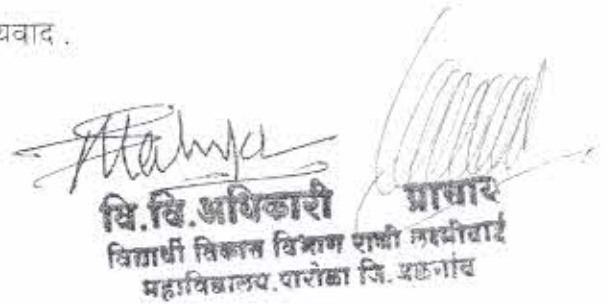 यवाद .
वि.वि.अधिकारी प्राचार्य
विद्यार्थी विकास विभाग राणी लक्ष्मीबाई
महाविद्यालय.पारोळा जि.जळगांव